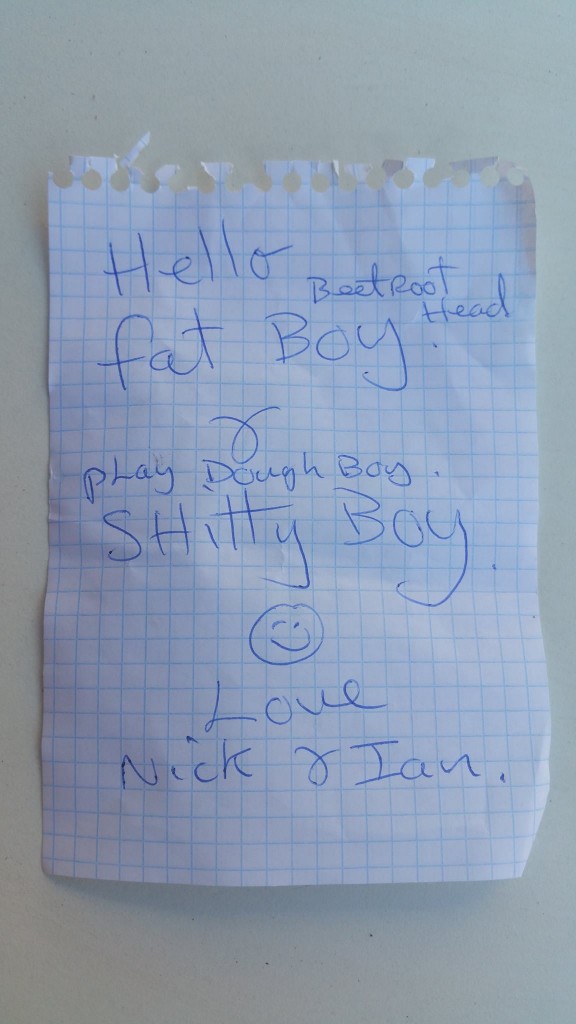 Hello
BeetRoot
Head
fat Boy.
&
pLay Dough Boy.
SHitty Boy.
Love
Nick & Ian.